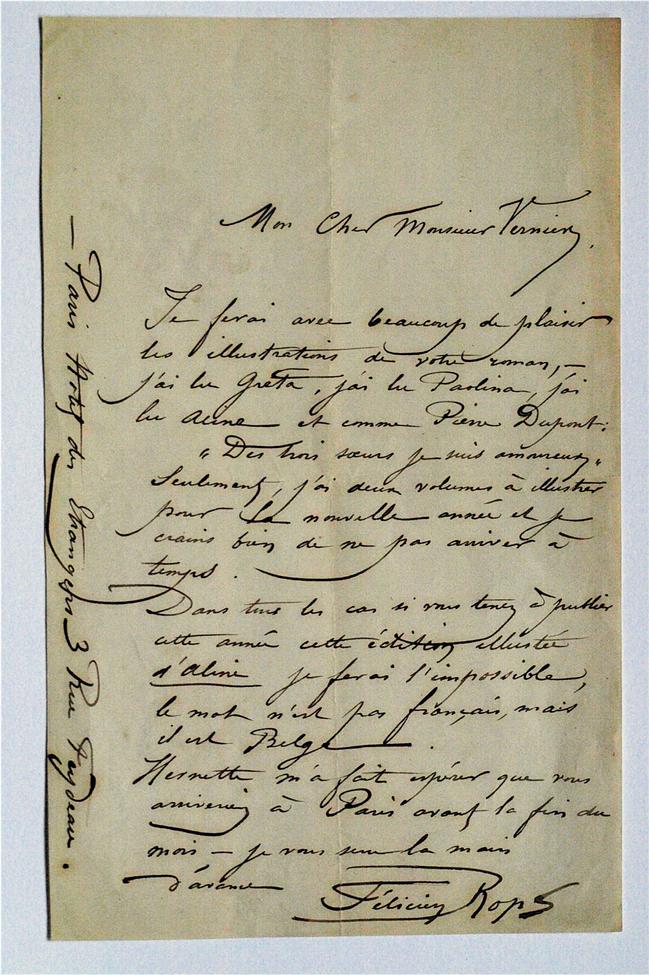 Mon Cher Monsieur Vernier,
Je ferai avec beaucoup de plaisir
les illustrations de votre roman, —
j'ai lu Greta, j'ai lu Paolina, j'ai
lu Aline et comme Pierre Dupont:
"Des trois sœurs je suis amoureux"
Seulement, j'ai deux volumes à illustrer
pour la nouvelle année et je
crains bien de ne pas arriver à
temps. —
Dans tous les cas si vous tenez à publier
cette année cette édition illustrée
d'Aline je ferai l'impossible,
le mot n'est pas français, mais
il est Belge — .
m'a fait espérer que vous
arriveriez à Paris avant la fin du
mois — je vous serre la main
d'avance
Félicien Rops
— Paris Hotel des Etrangers 3 Rue Feydeau.